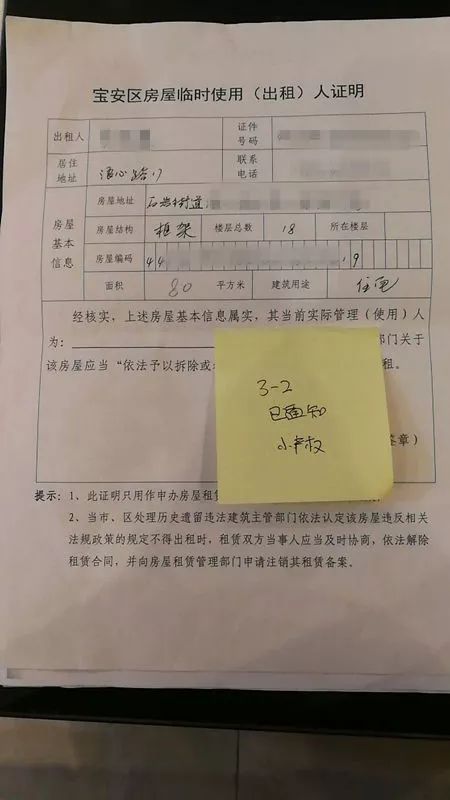 宝安区房屋临时使用（出租）人证明
出租人 证件号码
居住地址 浪心路17 联系电话
房屋基本信息 房屋地址 石岩街道
房屋结构 框架 楼层总数 18 所在楼层
房屋编码 44 19
面积 80 平方米 建筑用途 住宅
经核实，上述房屋基本信息属实，其当前实际管理（使用）人
为： 部门关于
该房屋应当“依法予以拆除或 租。
3-2
已通知
小产权
签章）
提示：1、此证明只用作申办房屋租
2、当市、区处理历史遗留违法建筑主管部门依法认定该房屋违反相关
法规政策的规定不得出租时，租赁双方当事人应当及时协商，依法解除
租赁合同，并向房屋租赁管理部门申请注销其租赁备案。